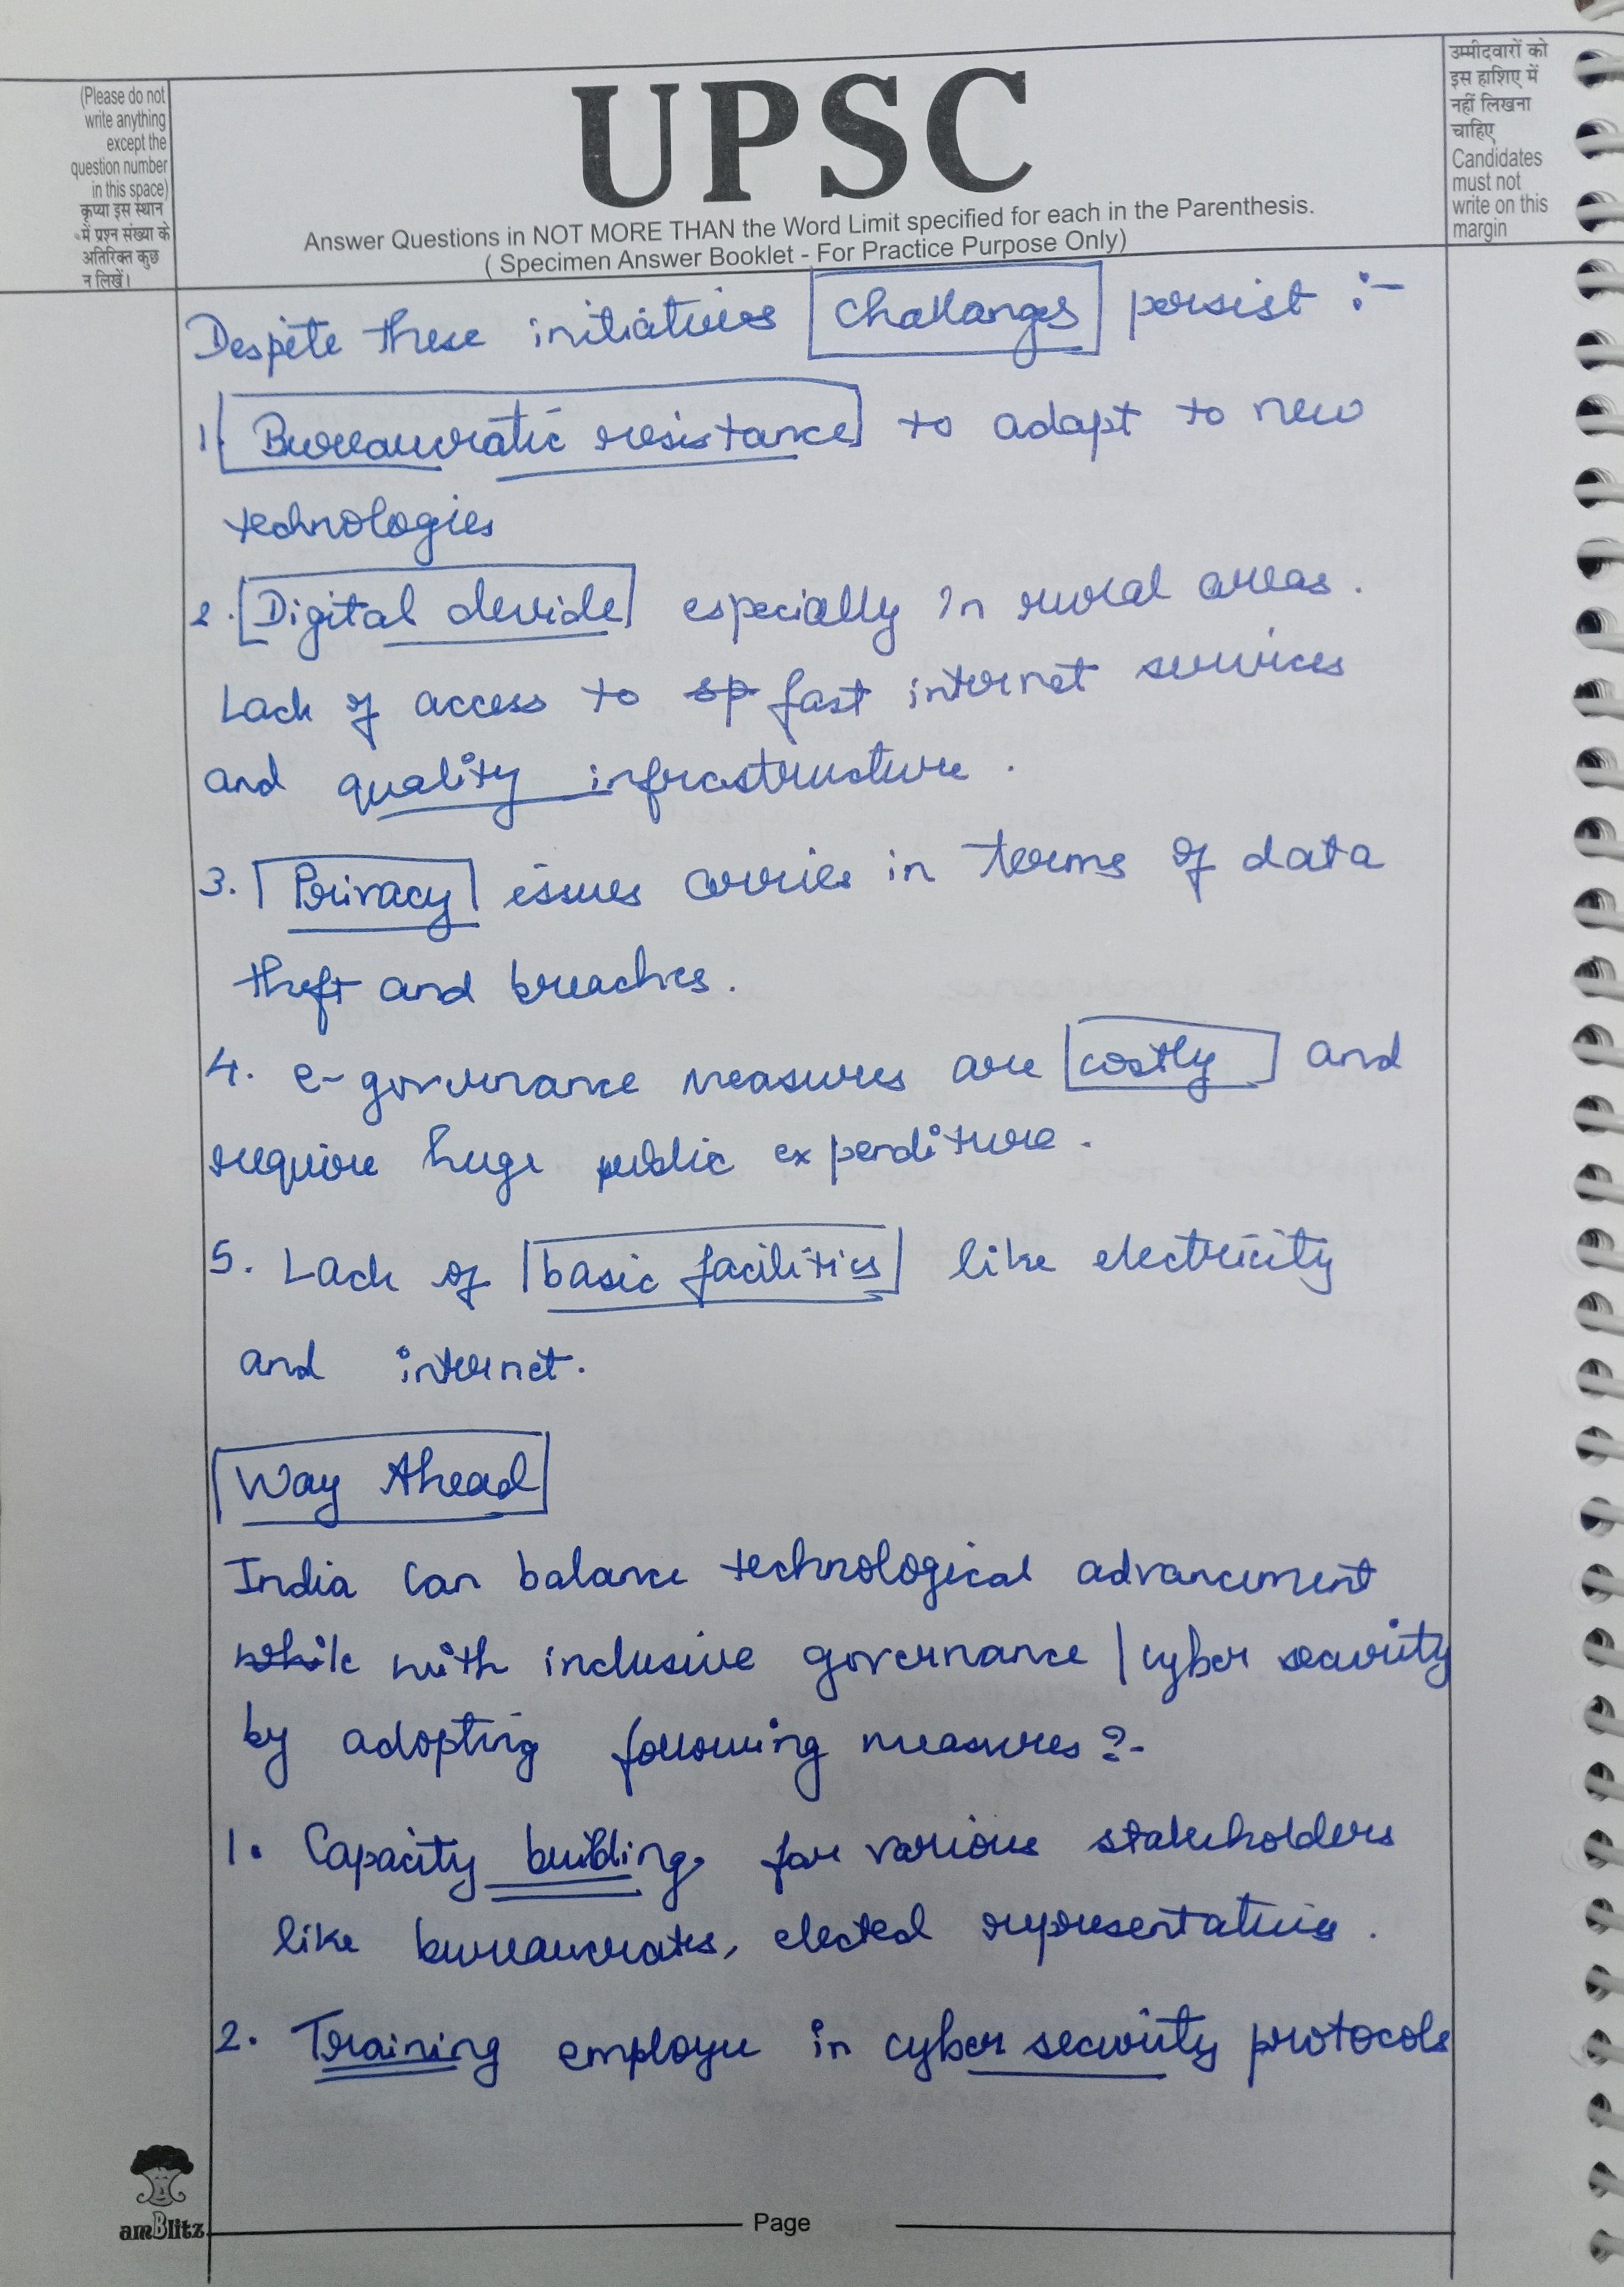 (Please do not
write anything
except the
question number
in this space)
कृप्या इस स्थान
में प्रश्न संख्या के
अतिरिक्त कुछ
न लिखें।
UPSC
Answer Questions in NOT MORE THAN the Word Limit specified for each in the Parenthesis.
( Specimen Answer Booklet - For Practice Purpose Only)
उम्मीदवारों को
इस हाशिए में
नहीं लिखना
चाहिए
Candidates
must not
write on this
margin
Despite these initiatives challanges persist :-
1. Bureaucratic resistance to adapt to new
technologies
2. Digital devide especially in rural areas.
Lack of access to sp fast internet services
and quality infrastructure.
3. Privacy issues in terms of data
theft and breaches.
4. e-governance measures are costly and
require huge public expenditure.
5. Lack of basic facilities like electricity
and internet.
Way Ahead
India can balance technological advancement
while with inclusive governance / cyber security
by adopting following measures :-
1. Capacity building for various stakeholders
like bureaucrates, elected representatives.
2. Training employe in cyber security protocols
amBlitz
Page